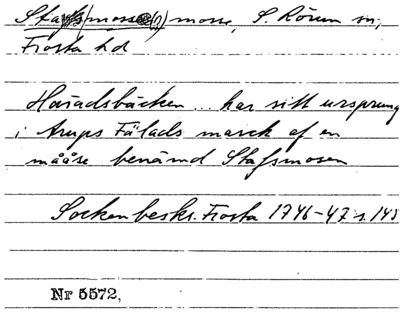 Stafs(mosse(n)) mosse, S. Rörum sn,
Frosta hd
Häradsbäcken .. har sitt ursprung
i Arups Fälads marck af en
mååse benämd Stafsmosen
Sockenbeskr. Frosta 1746-47 s. 145
Nr 5572,